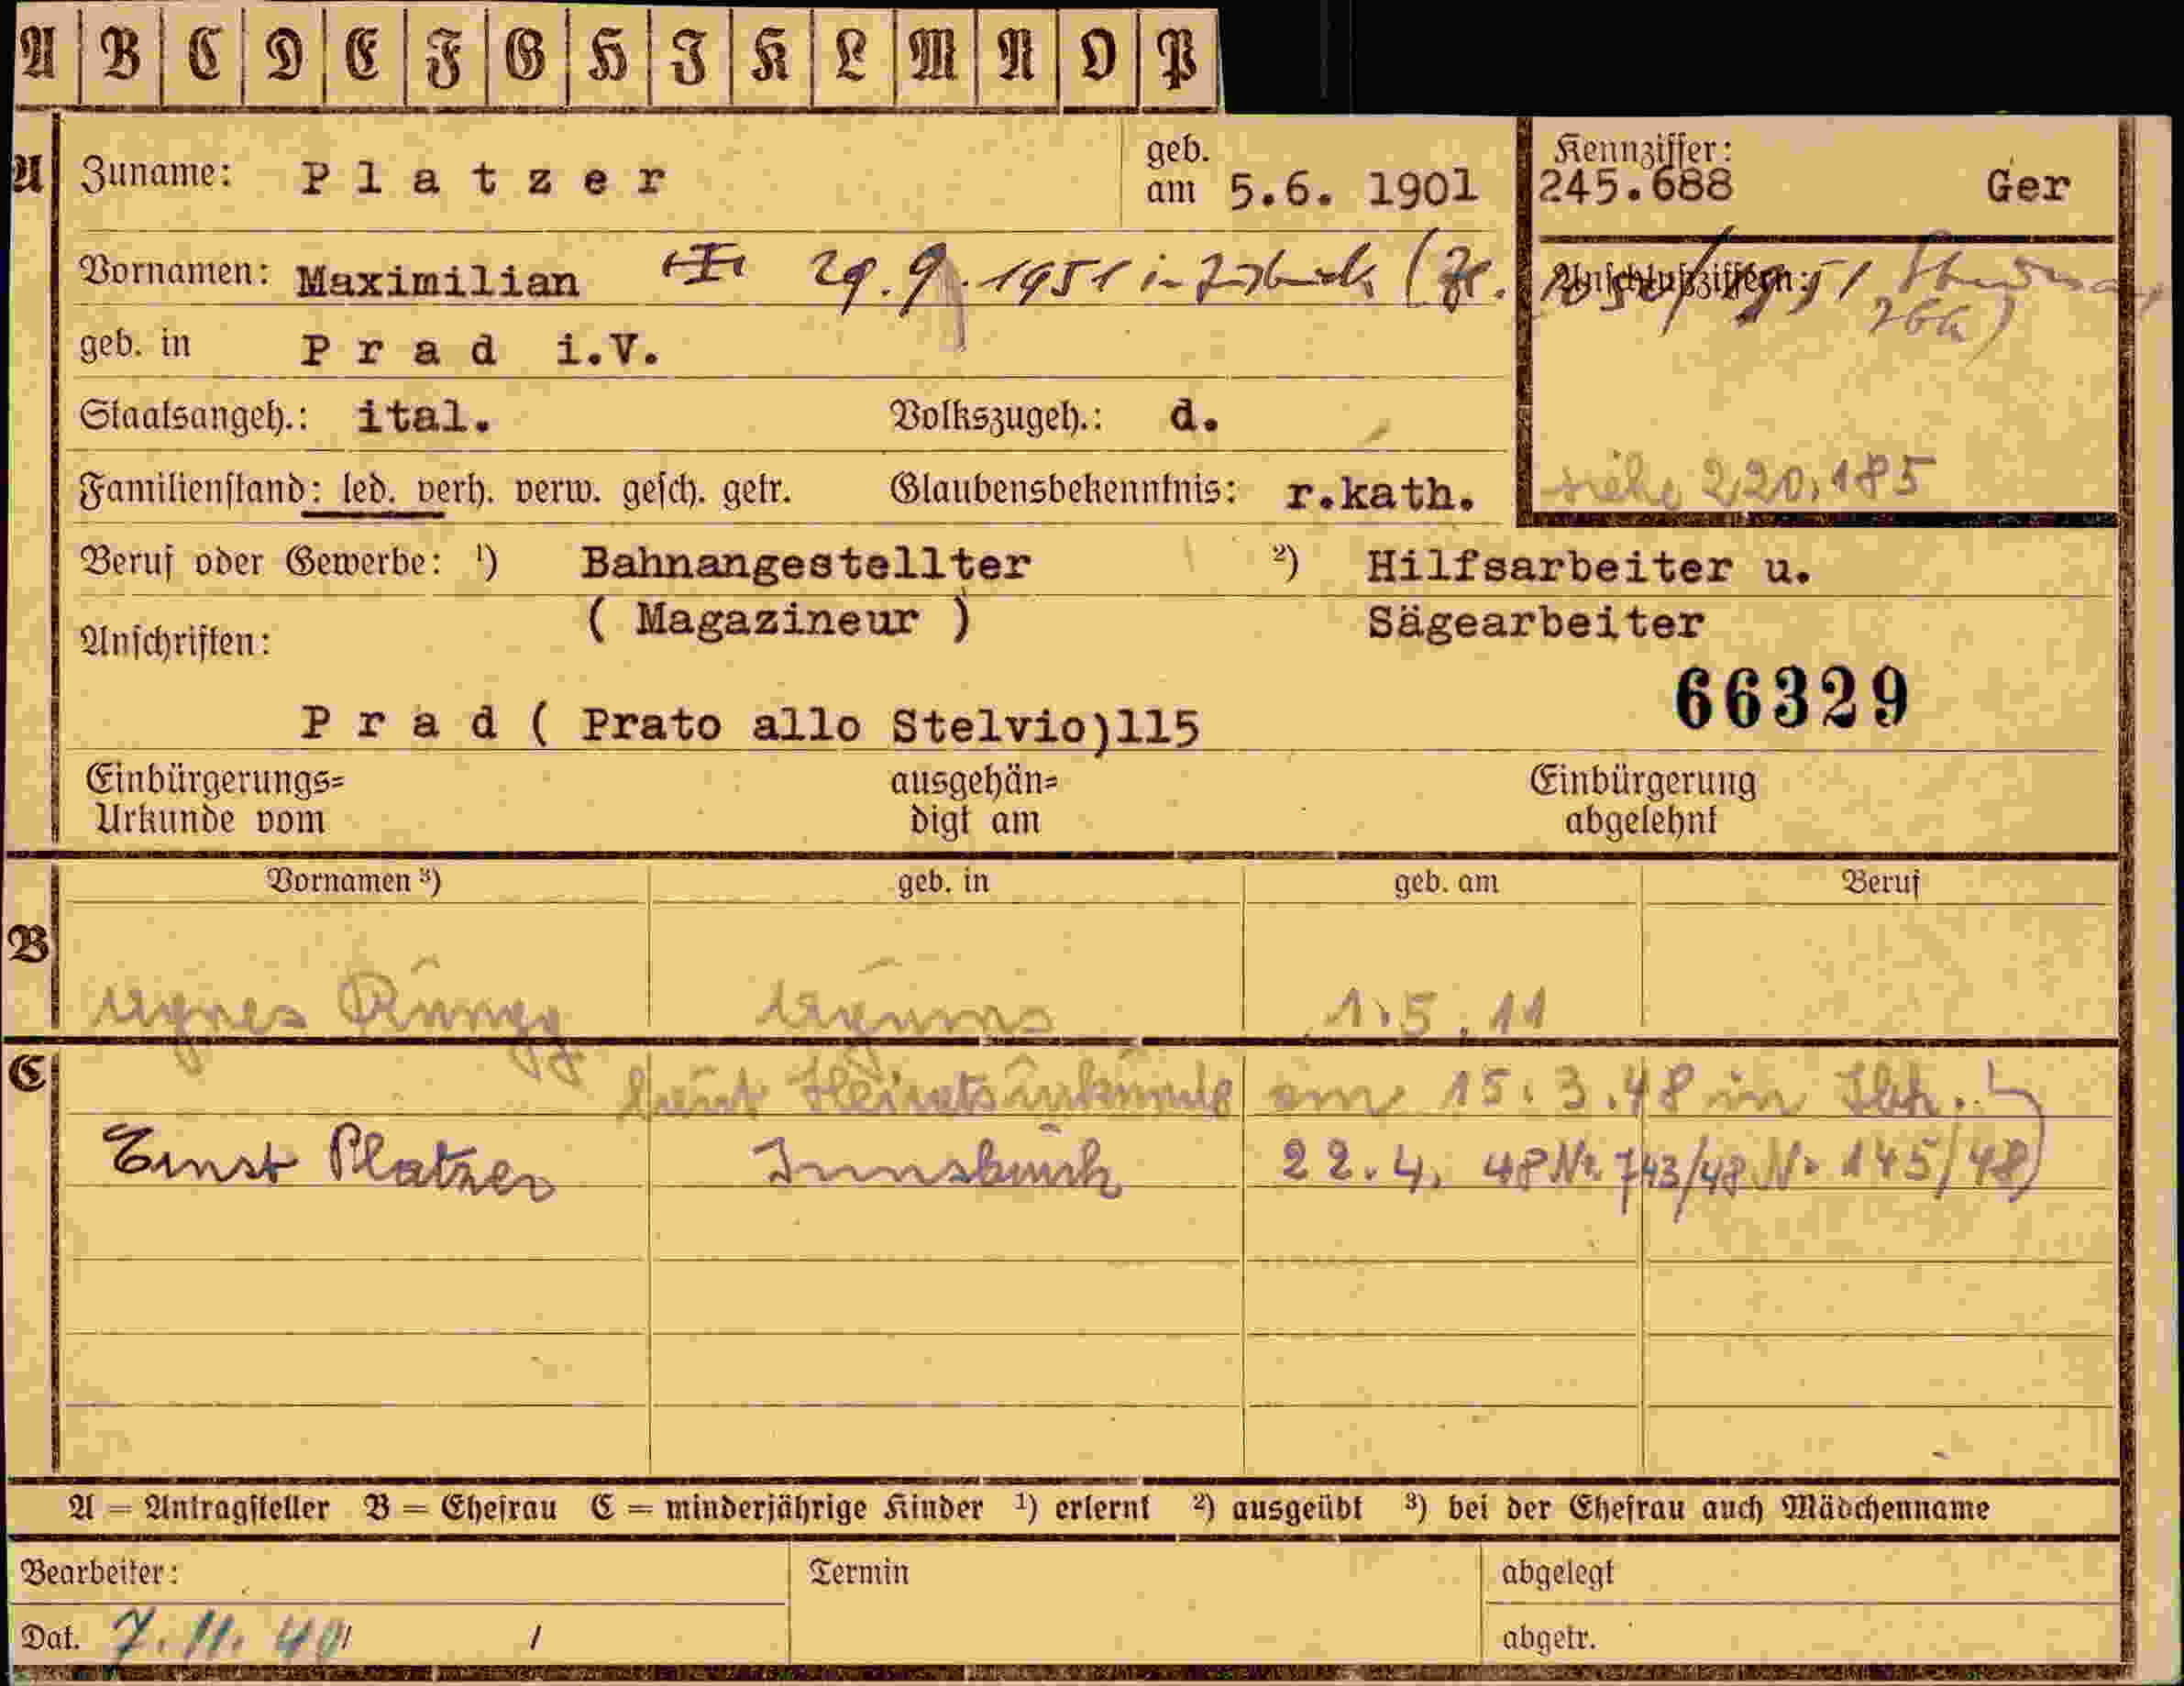 A B C D E F G H I K L M N O P
A Zuname: Platzer geb. am 5.6. 1901 Kennziffer: 245.688 Ger
Vornamen: Maximilian 29.9.1951 in Anschlußziffern: 51
geb. in Prad i.V.
Staatsangeh.: ital. Volkszugeh.: d.
Familienstand: led. verh. verw. gesch. getr. Glaubensbekenntnis: r.kath. siehe 220.185
Beruf oder Gewerbe: ¹) Bahnangestellter ²) Hilfsarbeiter u.
( Magazineur ) Sägearbeiter
Anschriften:
66329
Prad ( Prato allo Stelvio)115
Einbürgerungs= ausgehän= Einbürgerung
Urkunde vom digt am abgelehnt
Vornamen ³) geb. in geb. am Beruf
B
Agnes Rungg Agums 1.5.11
C
laut Heiratsurkunde am 15.3.48 in Ibk.
Ernst Platzer Innsbruck 22.4. 48 Nr. 743/48 Nr 145/48)
A = Antragsteller B = Ehefrau C = minderjährige Kinder ¹) erlernt ²) ausgeübt ³) bei der Ehefrau auch Mädchenname
Bearbeiter: Termin abgelegt
Dat. 7.11.40 / / abgetr.